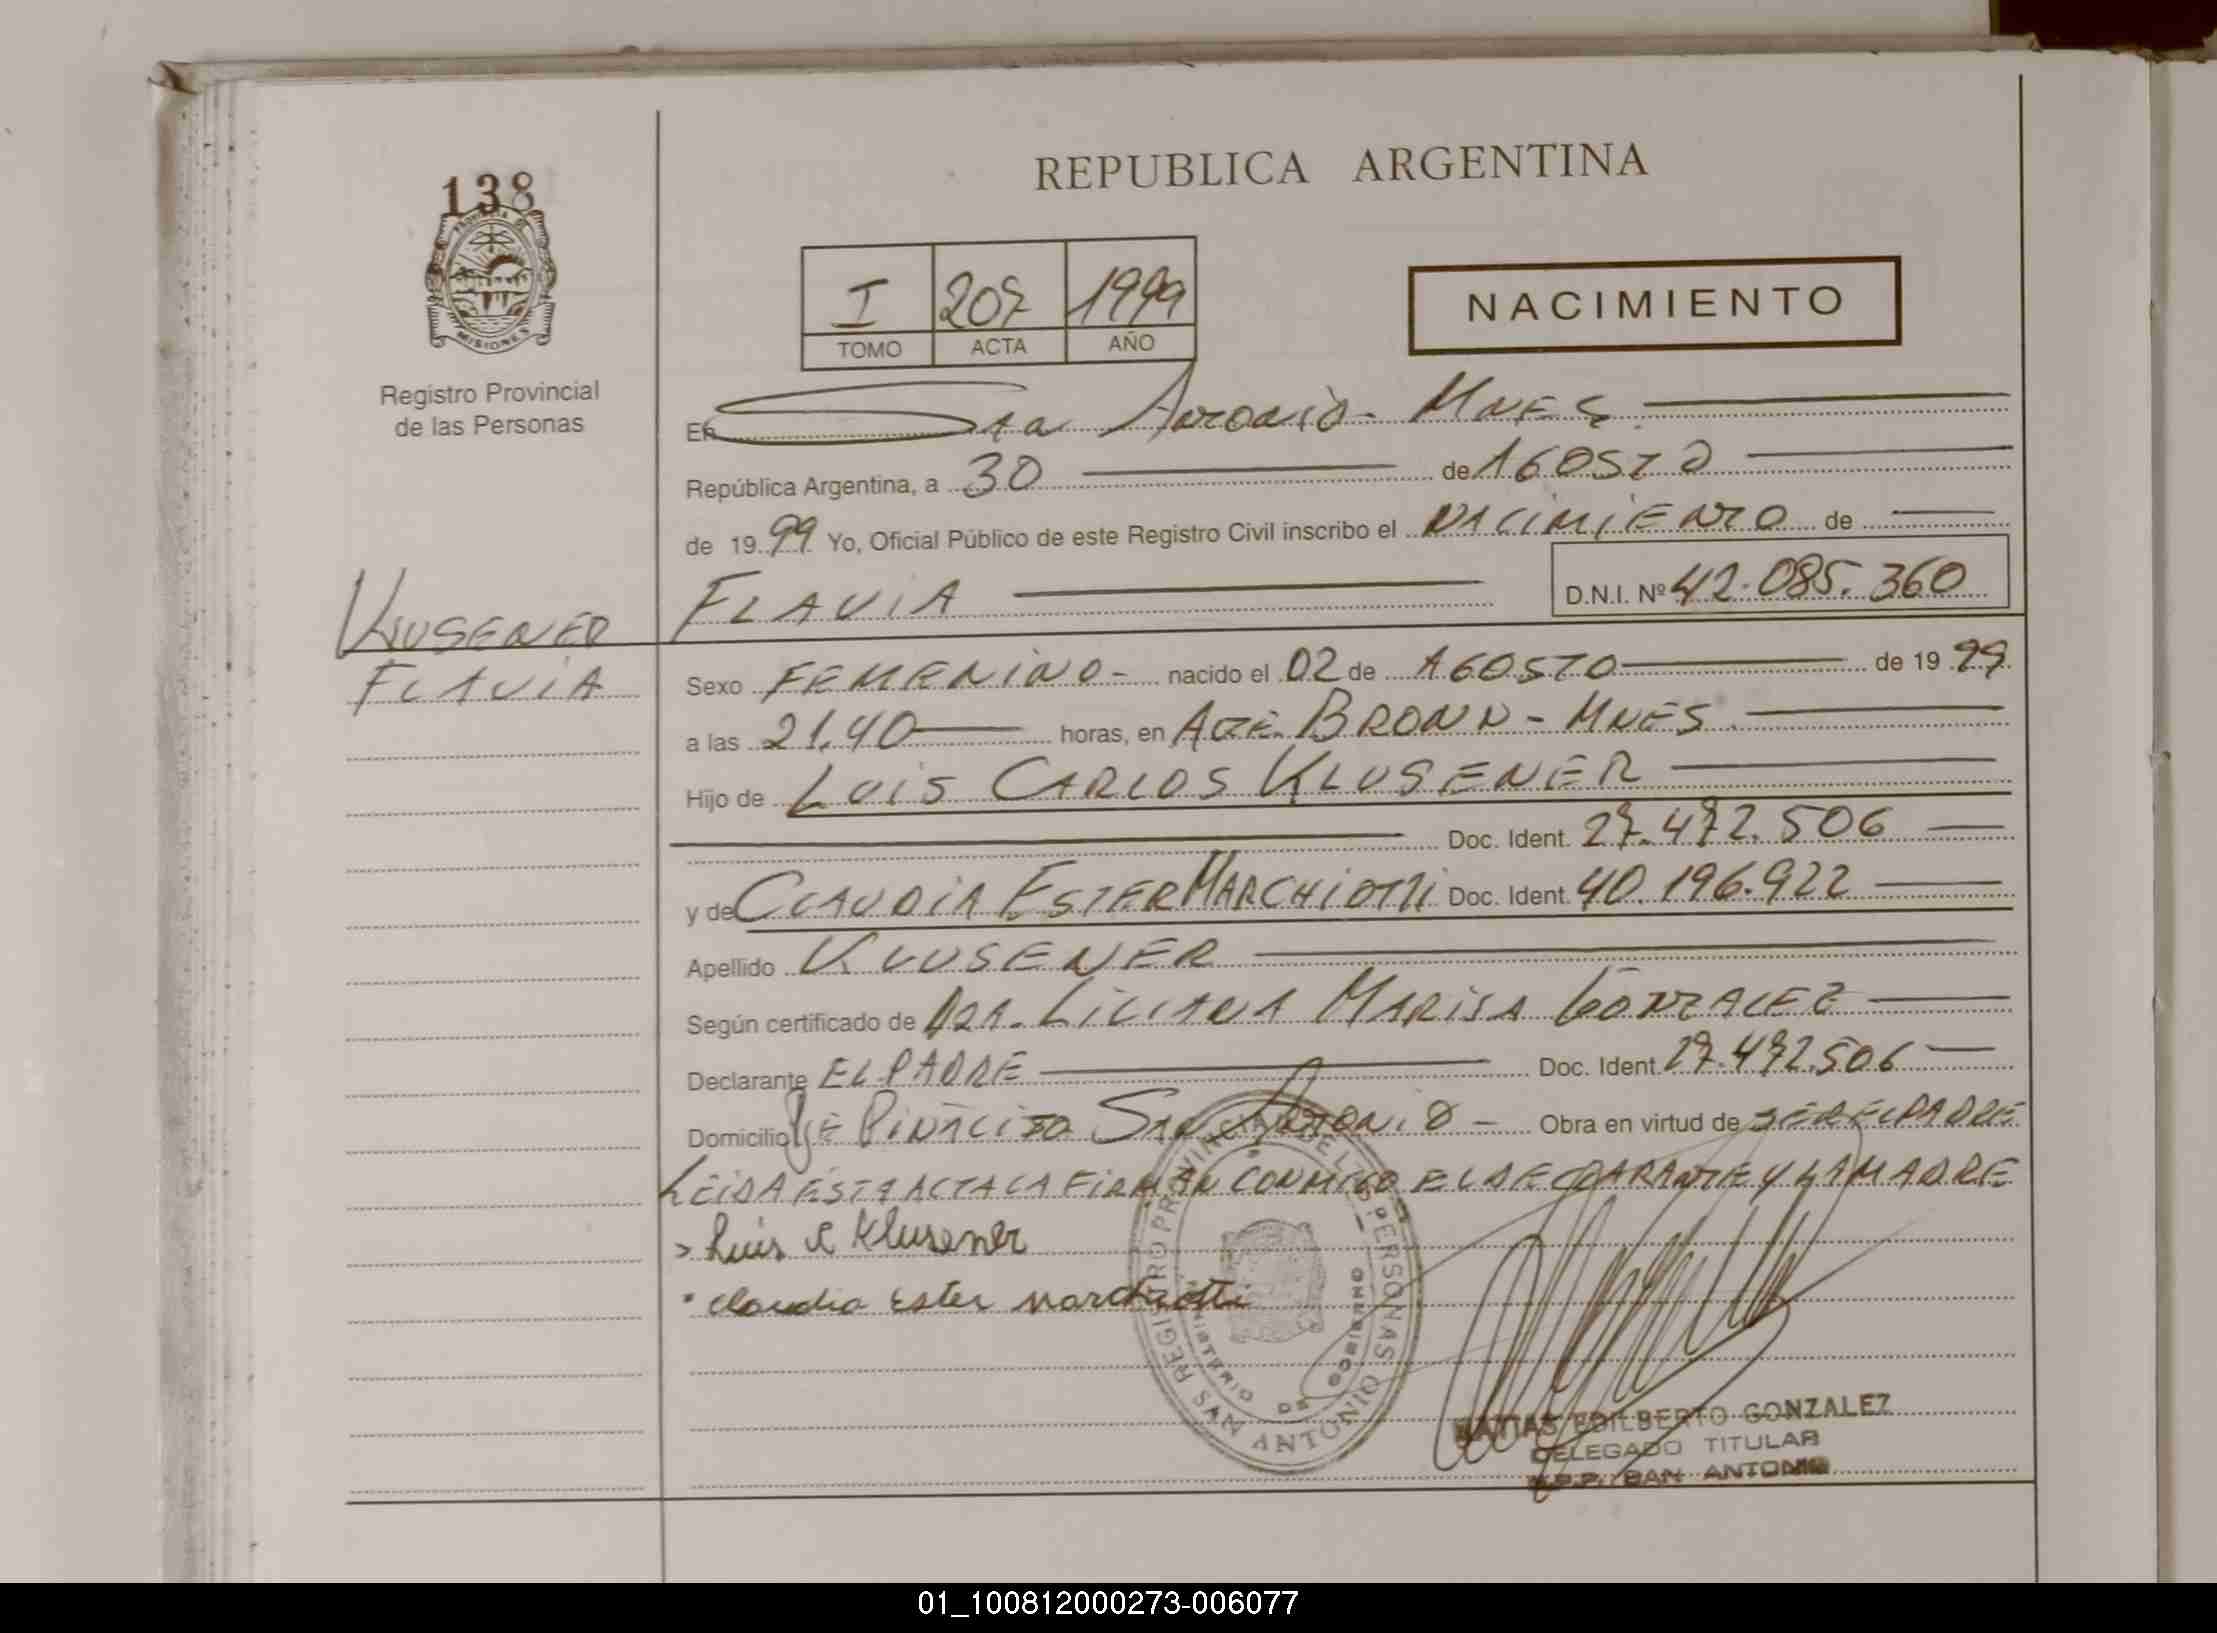 138
PROVINCIA DE
MISIONES
Registro Provincial
de las Personas
KLUSENER
FLAVIA
REPUBLICA ARGENTINA
I 207 1999
TOMO ACTA AÑO
NACIMIENTO
En San Antonio - MNES.
República Argentina, a 30 de AGOSTO
de 1999 Yo, Oficial Público de este Registro Civil inscribo el NACIMIENTO de
FLAVIA D.N.I. Nº 42.085.360
Sexo FEMENINO - nacido el 02 de AGOSTO de 1999
a las 21.40 horas, en ALTE. BRONN - MNES.
Hijo de LUIS CARLOS KLUSENER
Doc. Ident. 27.472.506
y de CLAUDIA ESTER MARCHIOTTI Doc. Ident. 40.196.922
Apellido KLUSENER
Según certificado de DRA. LILIANA MARISA GONZALEZ
Declarante EL PADRE Doc. Ident. 27.472.506
Domicilio PIÑALITO SAN ANTONIO - Obra en virtud de SER EL PADRE
LEIDA ESTA ACTA LA FIRMAN CONMIGO EL DECLARANTE Y LA MADRE
Luis C Klusener
Claudia Ester Marchiotti
REGISTRO PROVINCIAL DE LAS PERSONAS
MINISTERIO DE GOBIERNO
SAN ANTONIO
MATIAS EDILBERTO GONZALEZ
DELEGADO TITULAR
R.P.P. SAN ANTONIO
01_100812000273-006077